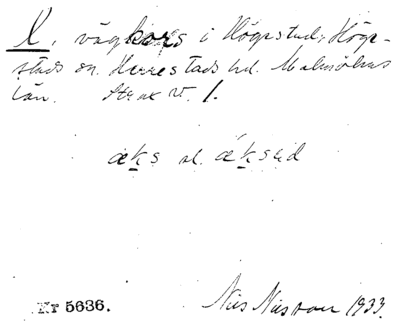 l, vägkors i Högestad, Högestads sn. Herrestads hd. Malmöhus
län. Strax v. l.
æks al. æksed
Nr 5636. Nils Nilsson 1933.